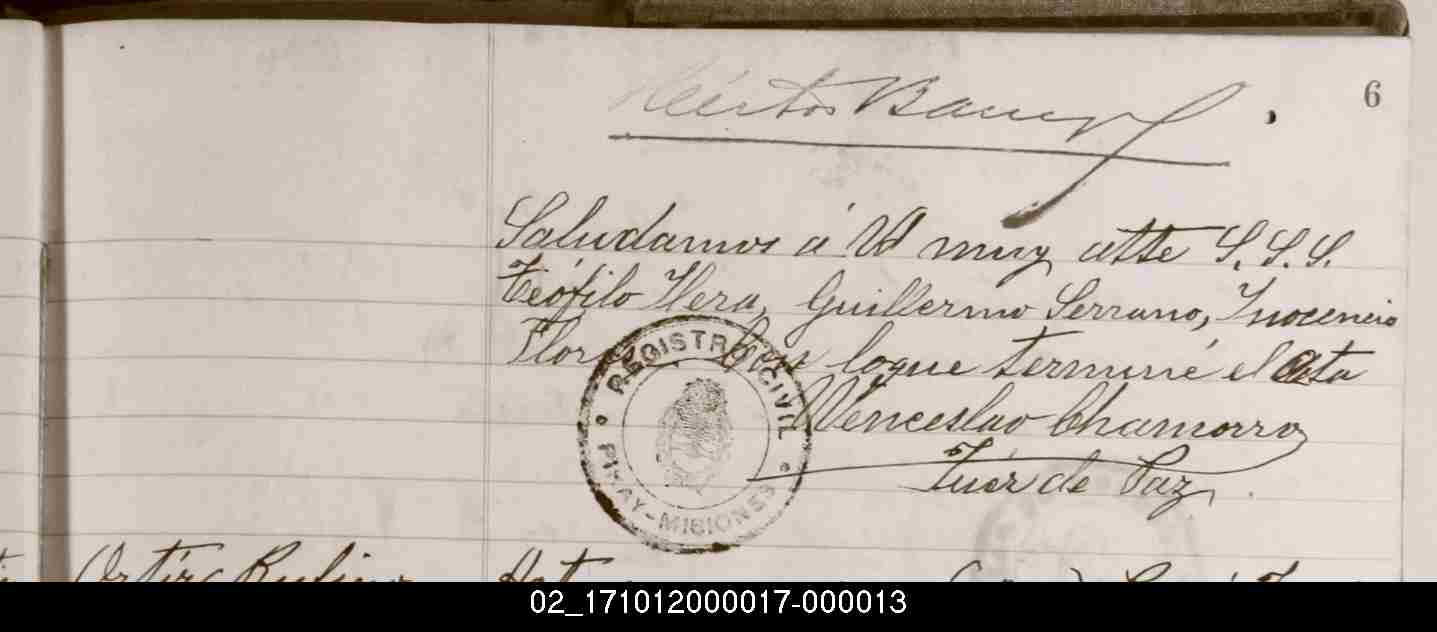 6
Saludamos á Vd muy atte S.S.S.
Teófilo Vera, Guillermo Serrano, Inocencio
Flor Con loque terminé el Acta
Wenceslao Chamorro
Juez de Paz
REGISTRO CIVIL
PIRAY-MISIONES
Ortiz Rufino
02_171012000017-000013